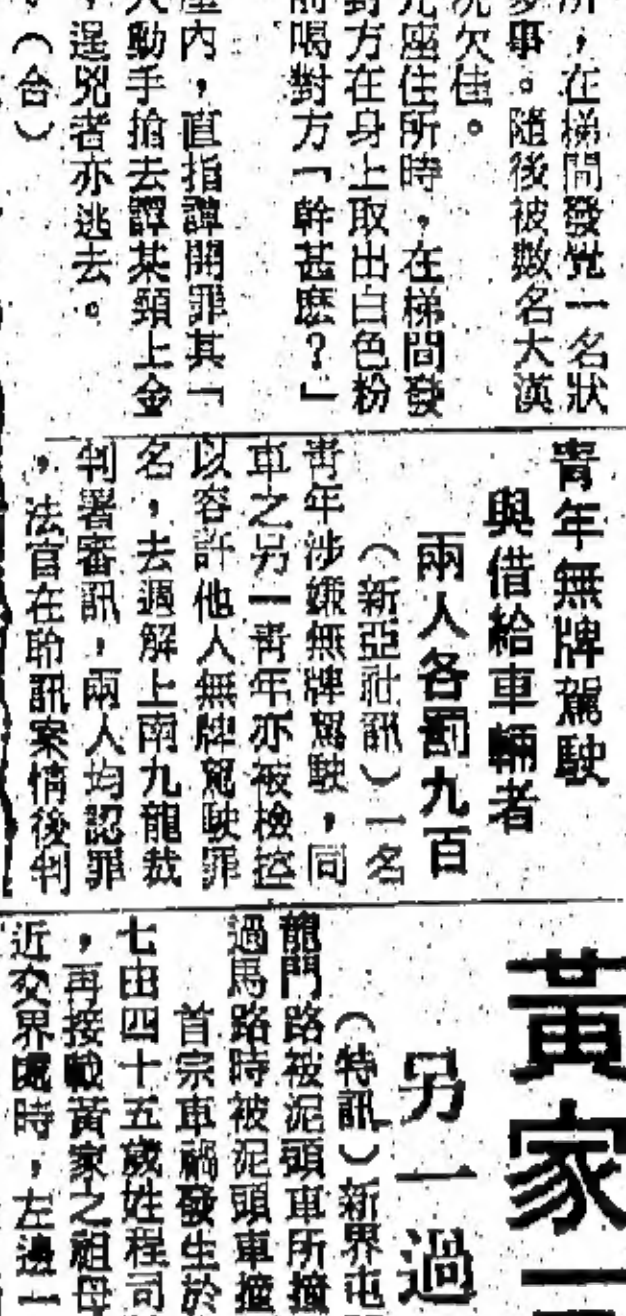 所，在梯間發覺一名狀
多事。隨後被數名大漢
況欠佳。
九座住所時，在梯間發
對方在身上取出白色粉
前喝對方「幹甚麽？」
屋內，直指譚開罪其「
人動手搶去譚某頸上金
，逞兇者亦逃去。
。（合）
青年無牌駕駛
與借給車輛者
兩人各罰九百
（新亞社訊）一名
青年涉嫌無牌駕駛，同
車之另一青年亦被檢控
以容許他人無牌駕駛罪
名，去週解上南九龍裁
判署審訊，兩人均認罪
，法官在聆訊案情後判
黃家
另一過
（特訊）新界屯
龍門路被泥頭車所撞
過馬路時被泥頭車撞
首宗車禍發生於
七由四十五歲姓程司
，再接載黃家之祖母
近交界處時，左邊一